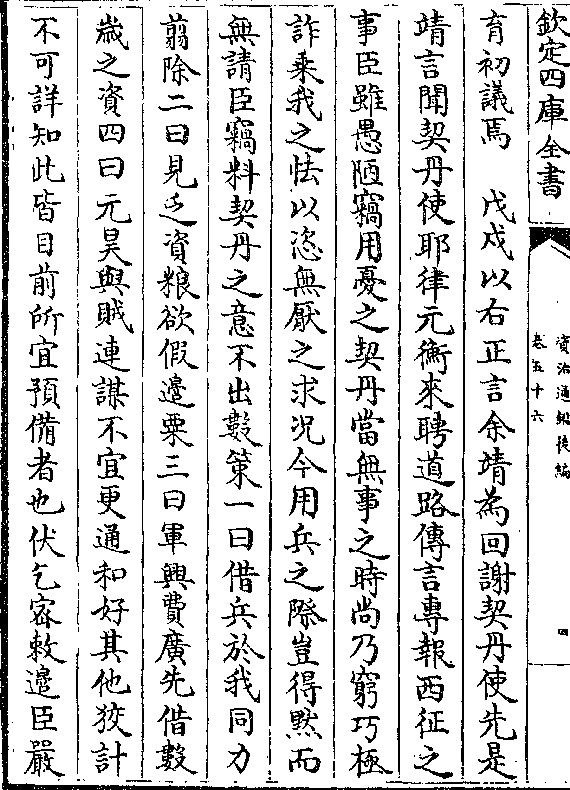 欽定四庫全書
資治通鑑後編
卷五十六
四
育初議焉　戊戌以右正言余靖為回謝契丹使先是
靖言聞契丹使耶律元衡來聘道路傳言專報西征之
事臣雖愚陋竊用憂之契丹當無事之時尚乃窮巧極
詐乘我之怯以恣無厭之求況今用兵之際豈得默而
無請臣竊料契丹之意不出數策一曰借兵於我同力
翦除二曰見乏資粮欲假邊粟三曰軍興費廣先借數
歲之資四曰元昊與賊連謀不宜更通和好其他狡計
不可詳知此皆目前所宜預備者也伏乞宻敕邊臣嚴